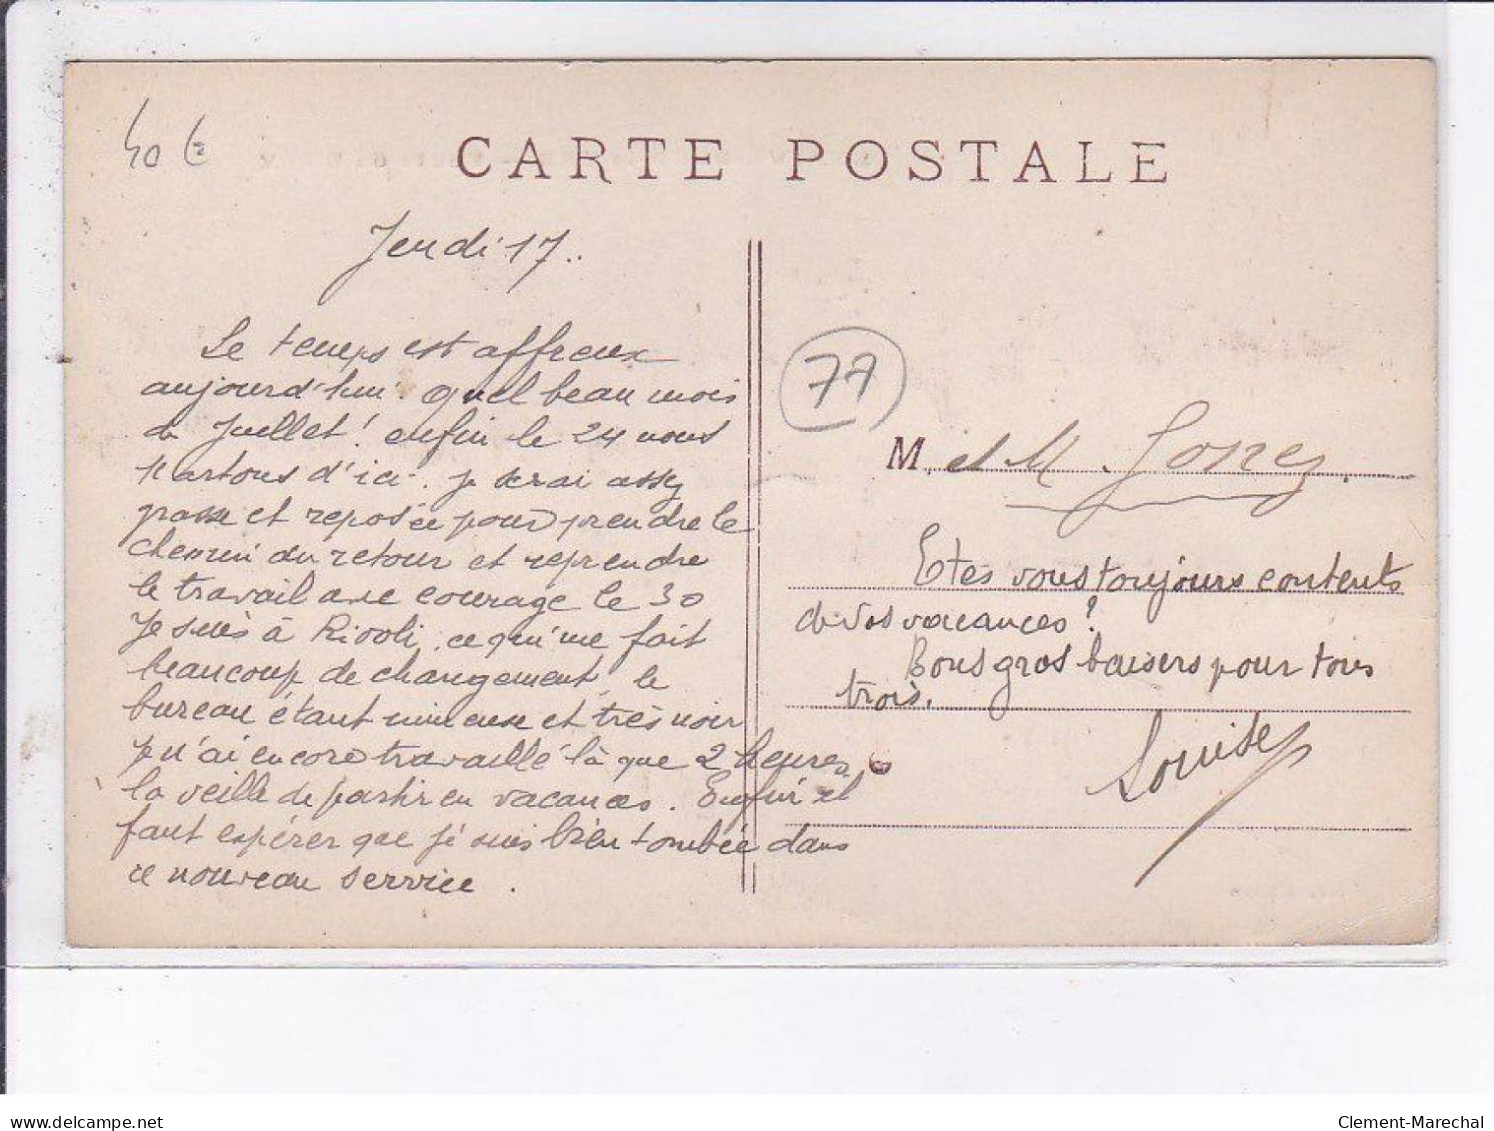 40 €
CARTE POSTALE
Jeudi 17..
Le temps est affreux
aujourd'hui. Quel beau mois
de Juillet! enfin le 24 nous
partons d'ici. je serai assez
grasse et reposée pour prendre le
chemin du retour et reprendre
le travail avec courage le 30
Je suis à Rivoli, ce qui me fait
beaucoup de changement, le
bureau étant immense et très noir
je n'ai encore travaillé là que 2 heures
la veille de partir en vacances. Enfin il
faut espérer que je suis bien tombée dans
ce nouveau service.
77
M. et M.
Etes vous toujours contents
de vos vacances?
Bons gros baisers pour tous
trois.
Louise
www.delcampe.net
Clement-Marechal